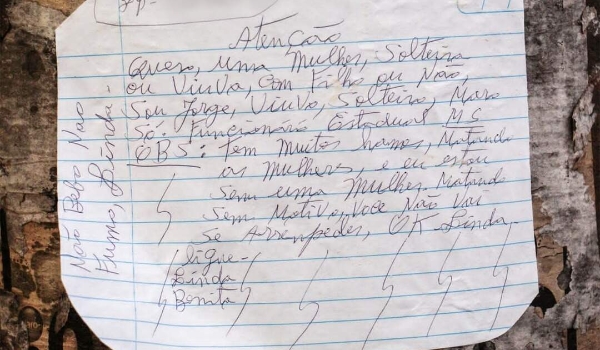 Atenção
Quero, uma Mulher, Solteira
ou Viuva, Com Filho ou Nao,
Sou Jorge, Viuvo, Solteiro, Moro
Só: Funcionário Estadual MG
OBS: tem muitos homes, Matando
as Mulheres, e eu estou
Sem uma Mulher. Matando
Sem Motivo, Voce Nao Vai
Se Arrenpedes, OK Linda
ligue-
Linda
Bonita
Não Bebo Nao
Fumo, Linda-